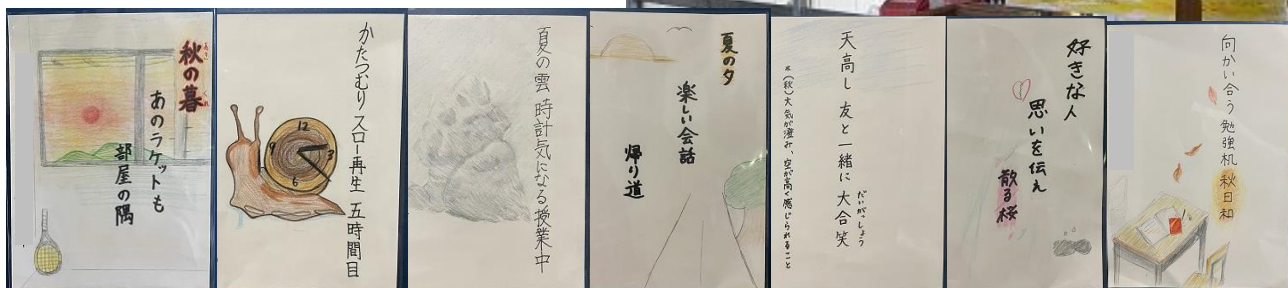 秋の暮
あき
くれ
あのラケットも
部屋の隅
かたつむり スロー再生 五時間目
12
3
6
9
夏の雲 時計気になる 授業中
夏の夕
楽しい会話
帰り道
天高し 友と一緒に 大合笑
だいがっしょう
*(秋)大気が澄み、空が高く感じられること
好きな人
思いを伝え
散る桜
向かい合う 勉強机 秋日和